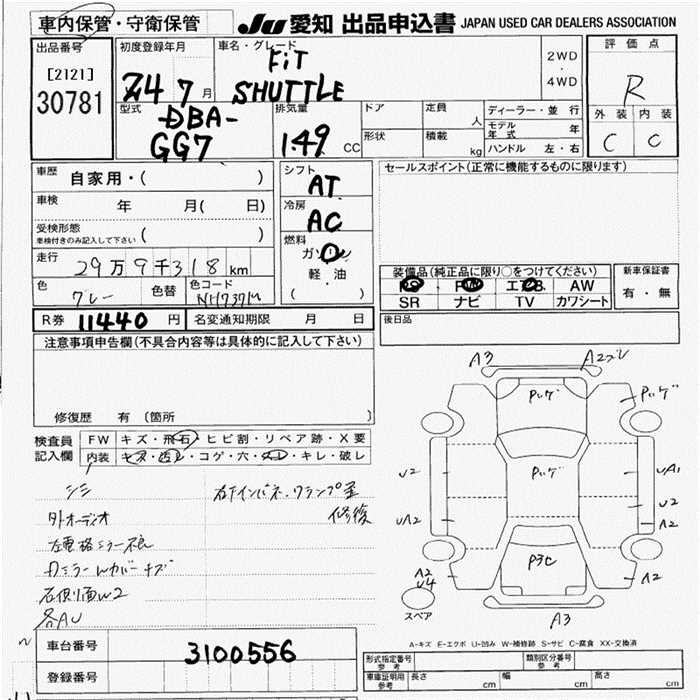 車内保管・守衛保管 JU 愛知 出品申込書 JAPAN USED CAR DEALERS ASSOCIATION
出品番号
[2121]
30781
初度登録年月
24 7 月
車名・グレード
FiT
SHUTTLE
2WD
・
4WD
評価点
R
外装 内装
C C
型式
-DBA-
GG7
排気量
1.49 CC
ドア
定員 人
形状
積載 kg
ディーラー・並行
モデル年式 年
ハンドル 左・右
車歴 自家用・( )
シフト
AT
セールスポイント(正常に機能するものに限ります)
車検 年 月( 日)
冷房
AC
受検形態
車検付きのみ記入して下さい ( )
燃料
ガソリン
軽・油
( )
走行 29万9千318km
色 グレー 色替 色コード NH737M
装備品(純正品に限り○をつけてください)
PS PW エアB AW
SR ナビ TV カワシート
新車保証書
有・無
R券 11440 円 名変通知期限 月 日
後日品
注意事項申告欄(不具合内容等は具体的に記入して下さい)
修復歴 有 〔箇所 〕
検査員
記入欄
FW キズ・飛石・ヒビ割・リペア跡・X要
内装 キズ・汚レ・コゲ・穴・スレ・キレ・破レ
シミ
外オーディオ
右ケインパネ、クランプ歪
修復
左電格ミラー不良
Dミラーwカバーキズ
右側面w2
各AU
A3 A2
Pいげ Pいげ
U2 Pいげ UA1
U2
UA2 A2
P3C
A2
U4 A2
スペア
A3
A-キズ E-エクボ U-凹み W-補修跡 S-サビ C-腐食 XX-交換済
車台番号 3100556
登録番号
形式指定番号
参考
類別区分番号
参考
車庫証明用
参考
長さ cm 幅 cm 高さ cm